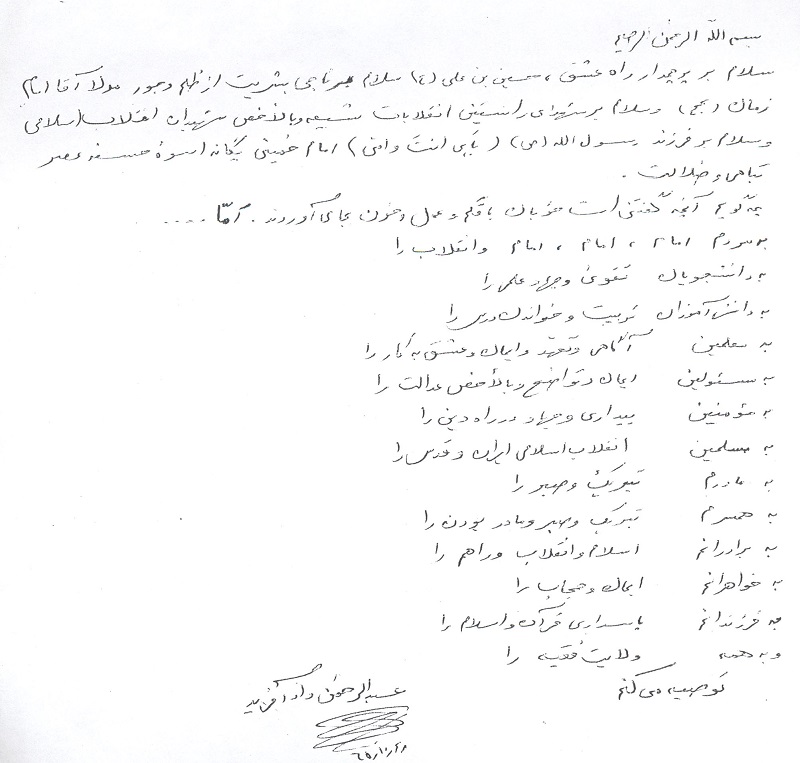 بسم الله الرحمن الرحیم
سلام بر پرچمدار راه عشق، حسین بن علی (ع) سلام بر ناجی بشریت از ظلم و جور مولا آقا امام
زمان (عج) و سلام بر شهدای راستین انقلابات شیعه و بالأخص شهیدان انقلاب اسلامی
و سلام بر فرزند رسول الله (ص) (بأبی انت و امی) امام خمینی یگانه اسوهٔ حسنه عصر
تباهی و ضلالت.
چه گویم آنچه گفتنی است خوبان با قلم و عمل و خون بجای آوردند. امّا.....
به مردم امام، امام، امام و انقلاب را
به دانشجویان تقوی و جهاد علمی را
به دانش آموزان تربیت و خواندن درس را
به معلمین آگاهی و تعهد و ایمان و عشق به کار را
به مسئولین ایمان و تواضع و بالأخص عدالت را
به مؤمنین بیداری و جهاد در راه دین را
به مسلمین انقلاب اسلامی ایران و قدس را
به مادرم تبریک و صبر را
به همسرم تبریک و صبر و مادر بودن را
به برادرانم اسلام و انقلاب و راهم را
به خواهرانم ایمان و حجاب را
به فرزندانم پاسداری قرآن و اسلام را
و به همه ولایت فقیه را
توصیه می کنم
عبدالرحمن دادآفرید